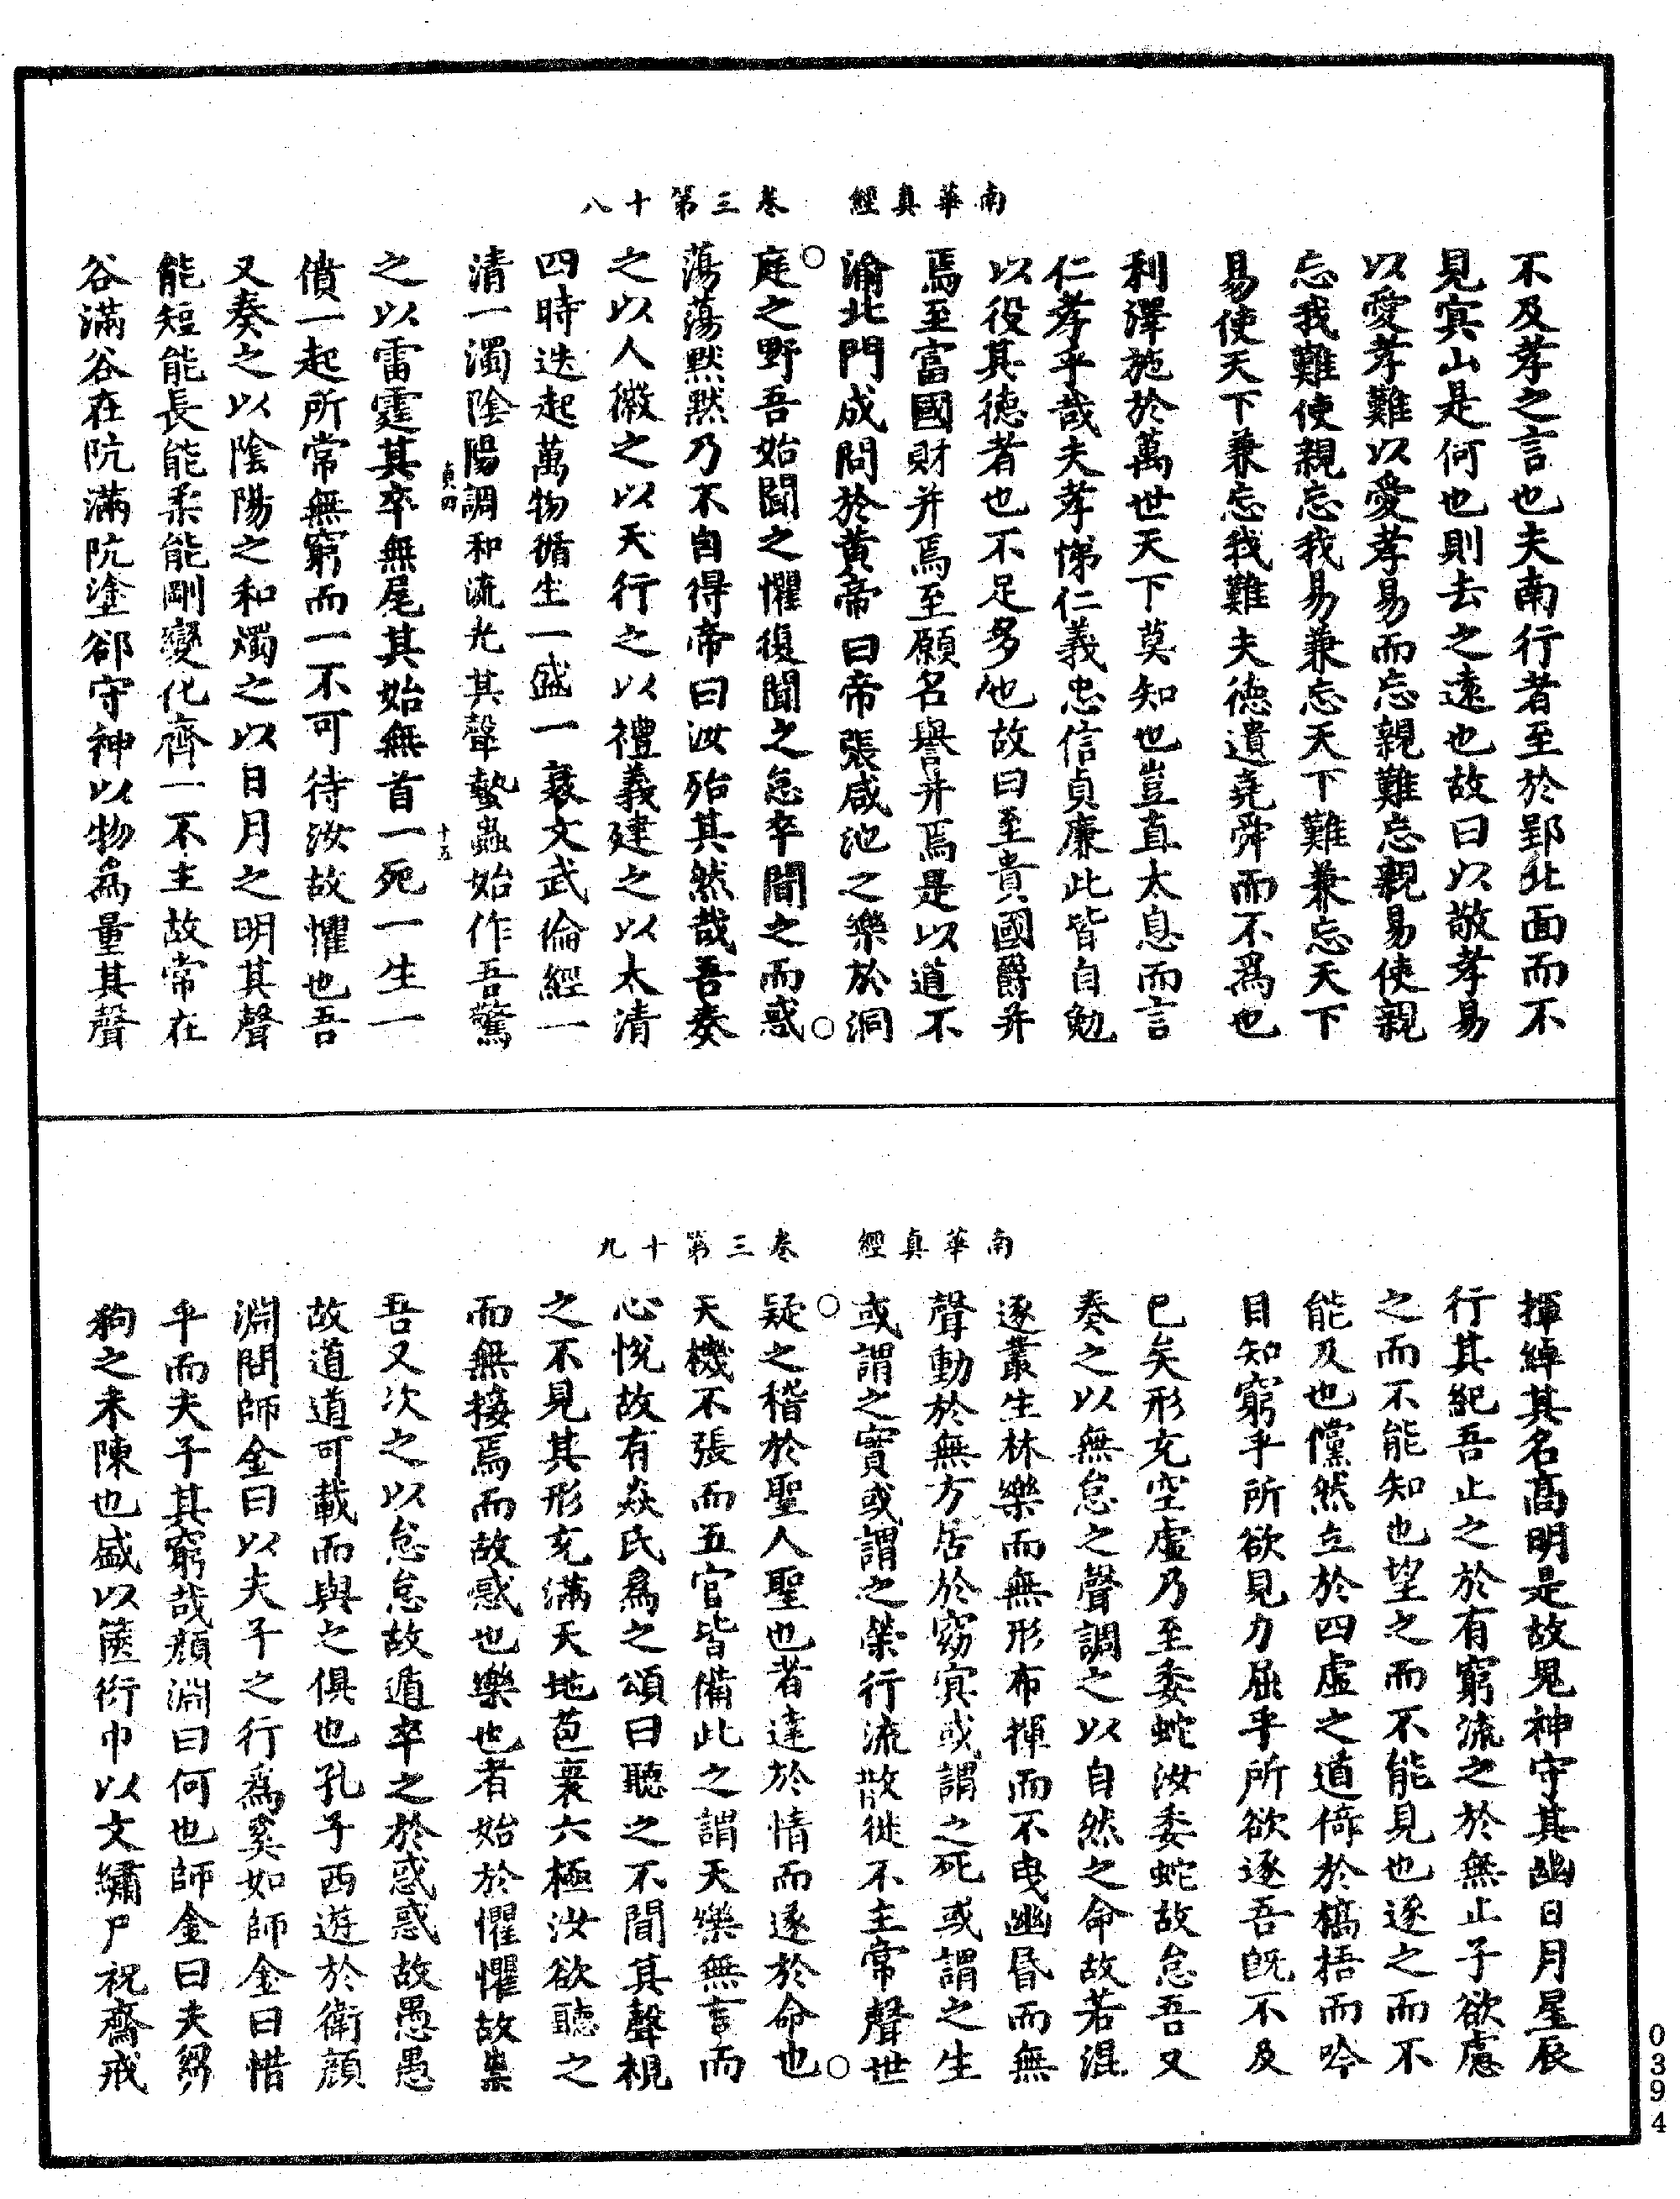 南華真經　卷三第十八
不及孝之言也夫南行者至於郢北面而不
見冥山是何也則去之遠也故曰以敬孝易
以愛孝難以愛孝易而忘親難忘親易使親
忘我難使親忘我易兼忘天下難兼忘天下
易使天下兼忘我難夫德遺堯舜而不爲也
利澤施於萬世天下莫知也豈直太息而言
仁孝乎哉夫孝悌仁義忠信貞廉此皆自勉
以役其德者也不足多也故曰至貴國爵并
焉至富國財并焉至願名譽并焉是以道不
渝北門成問於黃帝曰帝張咸池之樂於洞
庭之野吾始聞之懼復聞之怠卒聞之而惑
蕩蕩默默乃不自得帝曰汝殆其然哉吾奏
之以人徽之以天行之以禮義建之以太清
四時迭起萬物循生一盛一衰文武倫經一
清一濁陰陽調和流光其聲蟄蟲始作吾驚
貞四　十五
之以雷霆其卒無尾其始無首一死一生一
僨一起所常無窮而一不可待汝故懼也吾
又奏之以陰陽之和燭之以日月之明其聲
能短能長能柔能剛變化齊一不主故常在
谷滿谷在阬滿阬塗郤守神以物爲量其聲
南華真經　卷三第十九
揮綽其名高明是故鬼神守其幽日月星辰
行其紀吾止之於有窮流之於無止子欲慮
之而不能知也望之而不能見也逐之而不
能及也儻然立於四虛之道倚於槁梧而吟
目知窮乎所欲見力屈乎所欲逐吾既不及
已矣形充空虛乃至委蛇汝委蛇故怠吾又
奏之以無怠之聲調之以自然之命故若混
逐叢生林樂而無形布揮而不曳幽昏而無
聲動於無方居於窈冥或謂之死或謂之生
或謂之實或謂之榮行流散徙不主常聲世
疑之稽於聖人聖也者達於情而遂於命也
天機不張而五官皆備此之謂天樂無言而
心悅故有焱氏爲之頌曰聽之不聞其聲視
之不見其形充滿天地苞裹六極汝欲聽之
而無接焉而故惑也樂也者始於懼懼故祟
吾又次之以怠怠故遁卒之於惑惑故愚愚
故道道可載而與之俱也孔子西遊於衛顏
淵問師金曰以夫子之行爲奚如師金曰惜
乎而夫子其窮哉顏淵曰何也師金曰夫芻
狗之未陳也盛以篋衍巾以文繡尸祝齋戒
0394